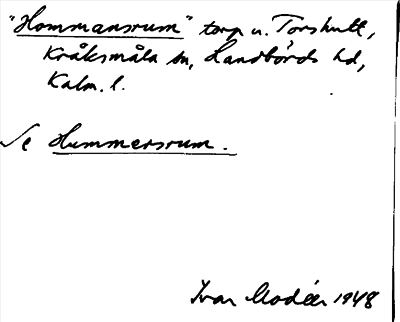 "Hommansrum" torp u. Torshult,
Kråksmåla sn, Handbörds hd,
Kalm. l.
Se Hummersrum.
Ivar Modéer 1948